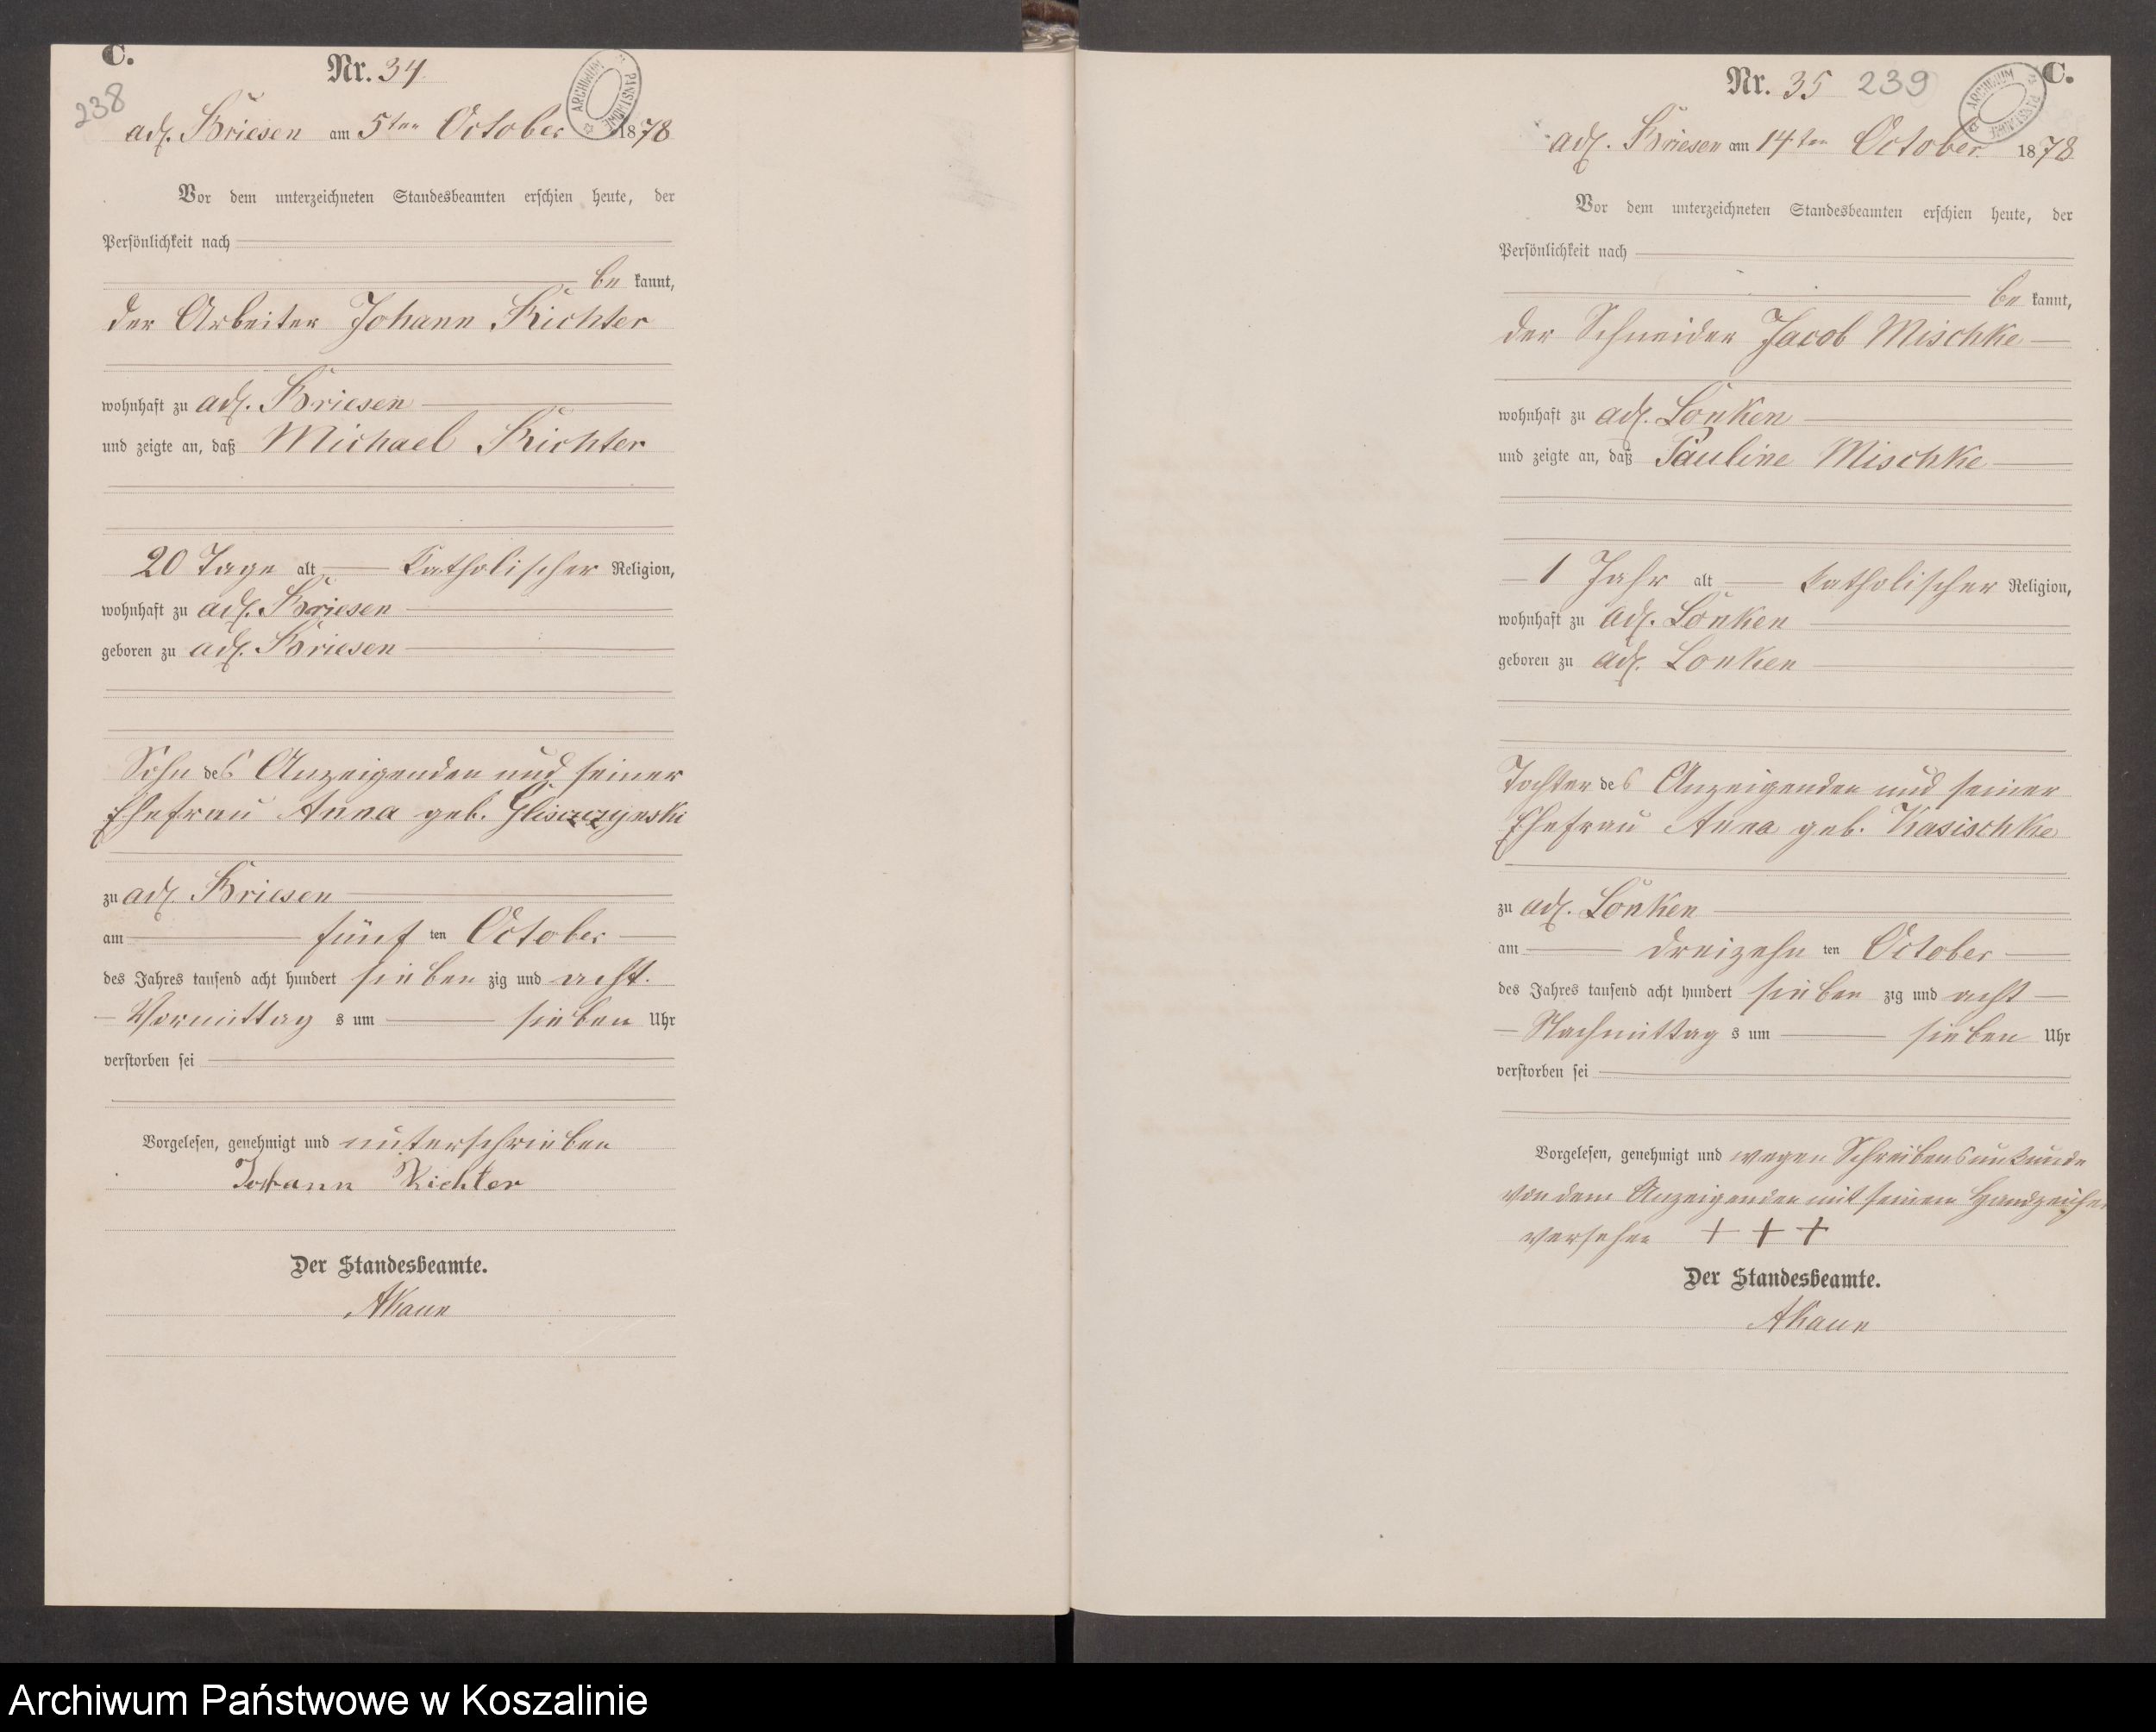 C.
Nr. 34.
238
ARCHIWUM PAŃSTWOWE
adl. Briesen am 5ten October 1878
Vor dem unterzeichneten Standesbeamten erschien heute, der
Persönlichkeit nach
be kannt,
der Arbeiter Johann Richter
wohnhaft zu adl. Briesen
und zeigte an, daß Michael Richter
20 Tage alt katholischer Religion,
wohnhaft zu adl. Briesen
geboren zu adl. Briesen
Sohn des Anzeigenden und seiner
Ehefrau Anna geb. Glisczczynski
zu adl. Briesen
am fünf ten October
des Jahres tausend acht hundert sieben zig und acht.
Vormittag s um sieben Uhr
verstorben sei
Vorgelesen, genehmigt und unterschrieben
Johann Richter
Der Standesbeamte.
AKaun
C.
Nr. 35 239
ARCHIWUM PAŃSTWOWE
adl. Briesen am 14ten October 1878
Vor dem unterzeichneten Standesbeamten erschien heute, der
Persönlichkeit nach
be kannt,
der Schneider Jacob Mischke
wohnhaft zu adl. Lonken
und zeigte an, daß Pauline Mischke
1 Jahr alt katholischer Religion,
wohnhaft zu adl. Lonken
geboren zu adl. Lonken
Tochter des Anzeigenden und seiner
Ehefrau Anna geb. Kasischke
zu adl. Lonken
am dreizehn ten October
des Jahres tausend acht hundert sieben zig und acht
Nachmittag s um sieben Uhr
verstorben sei
Vorgelesen, genehmigt und wegen Schreibensunkunde
von dem Anzeigenden mit seinem Handzeichen
versehen + + +
Der Standesbeamte.
AKaun
Archiwum Państwowe w Koszalinie